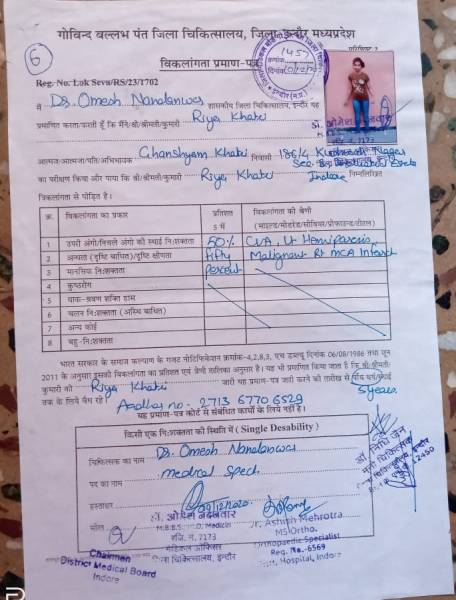 गोविन्द बल्लभ पंत जिला चिकित्सालय, जिला इन्दौर मध्यप्रदेश
6
विकलांगता प्रमाण-पत्र
Reg. No. Lok Seva/RS/23/1702
मैं Dr. Omesh Nandanwar शासकीय जिला चिकित्सालय, इन्दौर यह
प्रमाणित करता/करती हूँ कि मैंने श्री/श्रीमती/कुमारी Riya Khatri
आत्मज/आत्मजा/पति/अभिभावक Ghanshyam Khatri निवासी 186/4
Indore
का परीक्षण किया और पाया कि श्री/श्रीमती/कुमारी Riya Khatri निम्नलिखित
विकलांगता से पीड़ित है।
क्र. विकलांगता का प्रकार प्रतिशत में विकलांगता की श्रेणी
1 उपरी अंगो/निचले अंगो की स्थाई निःशक्तता 50% CVA, Lt Hemiparesis,
2 अन्धता (दृष्टि बाधित)/दृष्टि क्षीणता fifty Malignant Rt MCA Infarct
3 मानसिक निःशक्तता percent
4 कुष्ठरोग
5 वाक-श्रवण शक्ति ह्रास
6 चलन निःशक्तता (अस्थि बाधित)
7 अन्य कोई
8 बहु-निःशक्तता
भारत सरकार के समाज कल्याण के गजट नोटिफिकेशन क्रमांक-4,2,8,3, एच डब्ल्यू दिनांक 06/08/1986 तथा जून
2011 के अनुसार इसकी विकलांगता का प्रतिशत एवं श्रेणी तालिका अनुसार है। यह भी प्रमाणित किया जाता है कि श्री/श्रीमती/
कुमारी को Riya Khatri जारी यह प्रमाण-पत्र जारी करने की तारीख से पाँच वर्ष
तक के लिये वैध रहेगा 5 years
Aadhar no - 2713 6770 6529
यह प्रमाण-पत्र कोर्ट से संबंधित कार्यो के लिये नहीं है।
किसी एक निःशक्तता की स्थिति में ( Single Desability )
चिकित्सक का नाम Dr. Omesh Nandanwar
पद का नाम medical Spect.
हस्ताक्षर
सील
डॉ. ओमेश नंदनवार
रजि. नं. 7173
मेडिकल ऑफिसर
जिला चिकित्सालय, इन्दौर
Dr. Ashish Mehrotra
MS Ortho.
Orthopaedic Specialist
Reg. No.-6569
Hospital, Indore
Chairman
District Medical Board
Indore